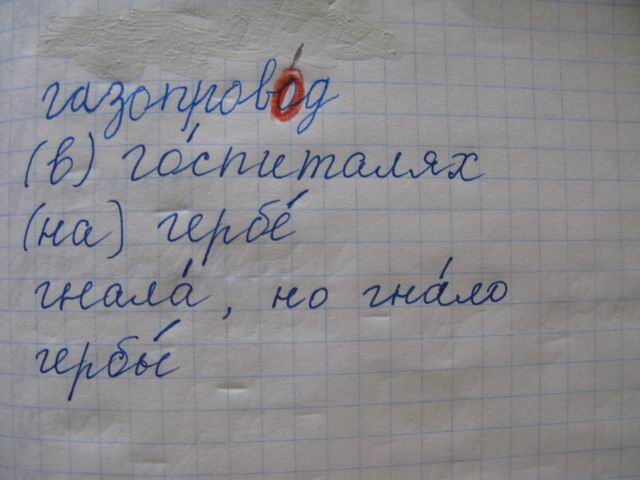 газопрово́д
(в) го́спиталях
(на) гербе́
гнала́, но гна́ло
гербы́